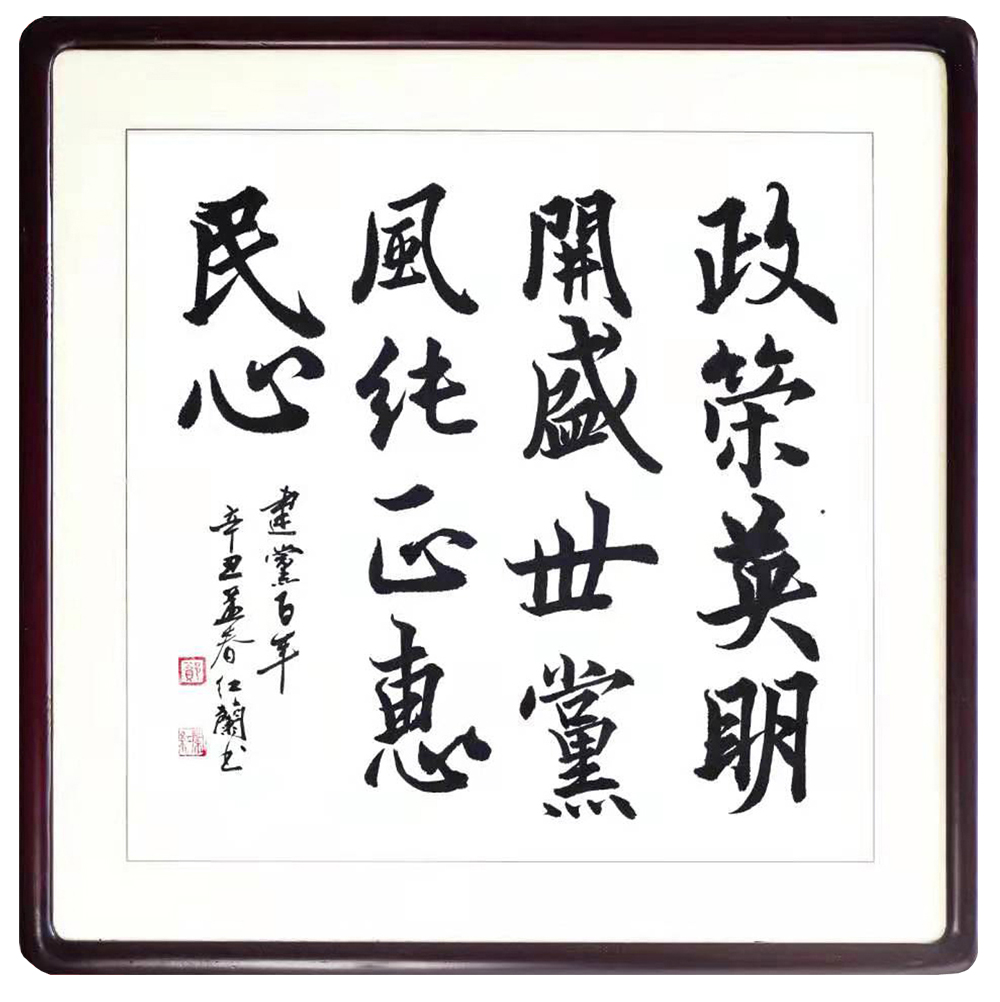 政荣英明
開盛世黨
風纯正惠
民心
建黨百年
辛丑孟春红蘭书